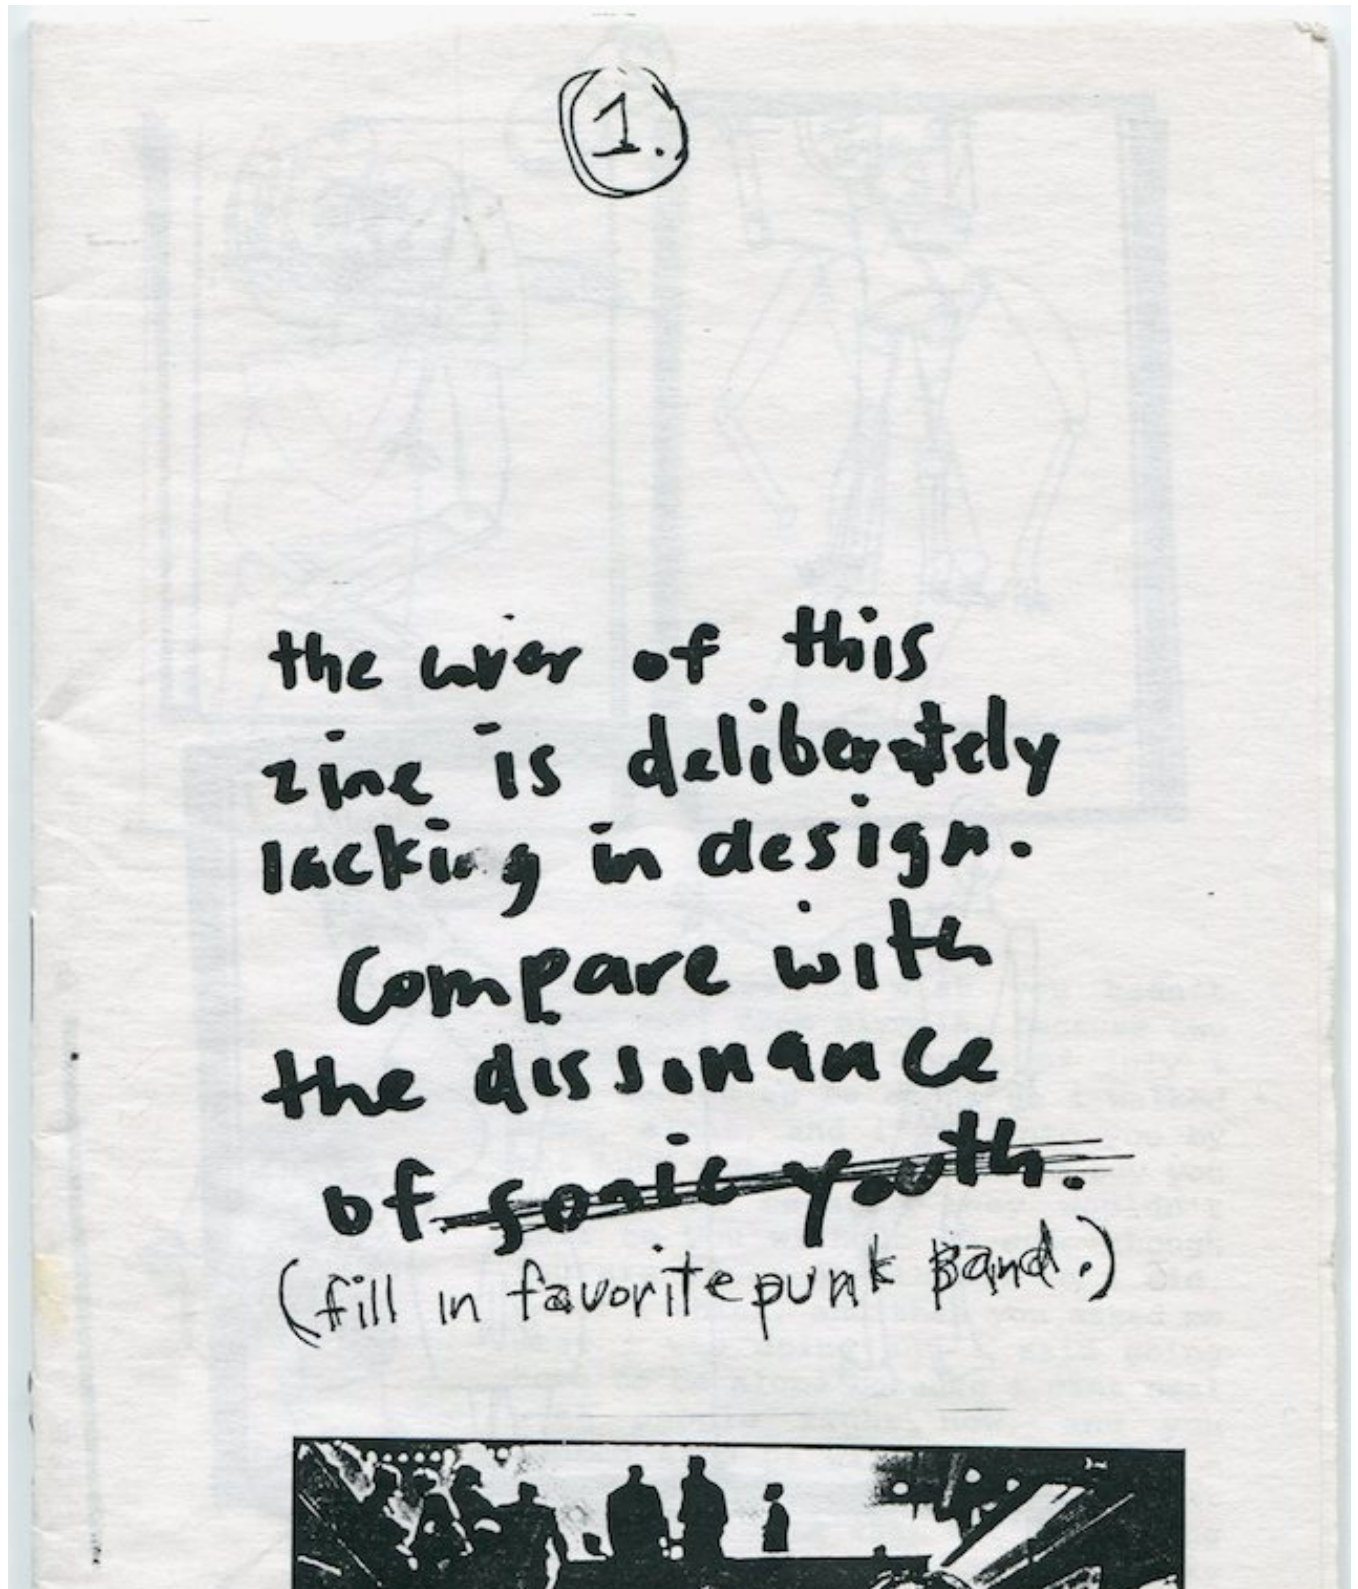 1.
the cover of this
zine is deliberately
lacking in design.
Compare with
the dissonance
of sonic youth.
(fill in favorite punk band.)